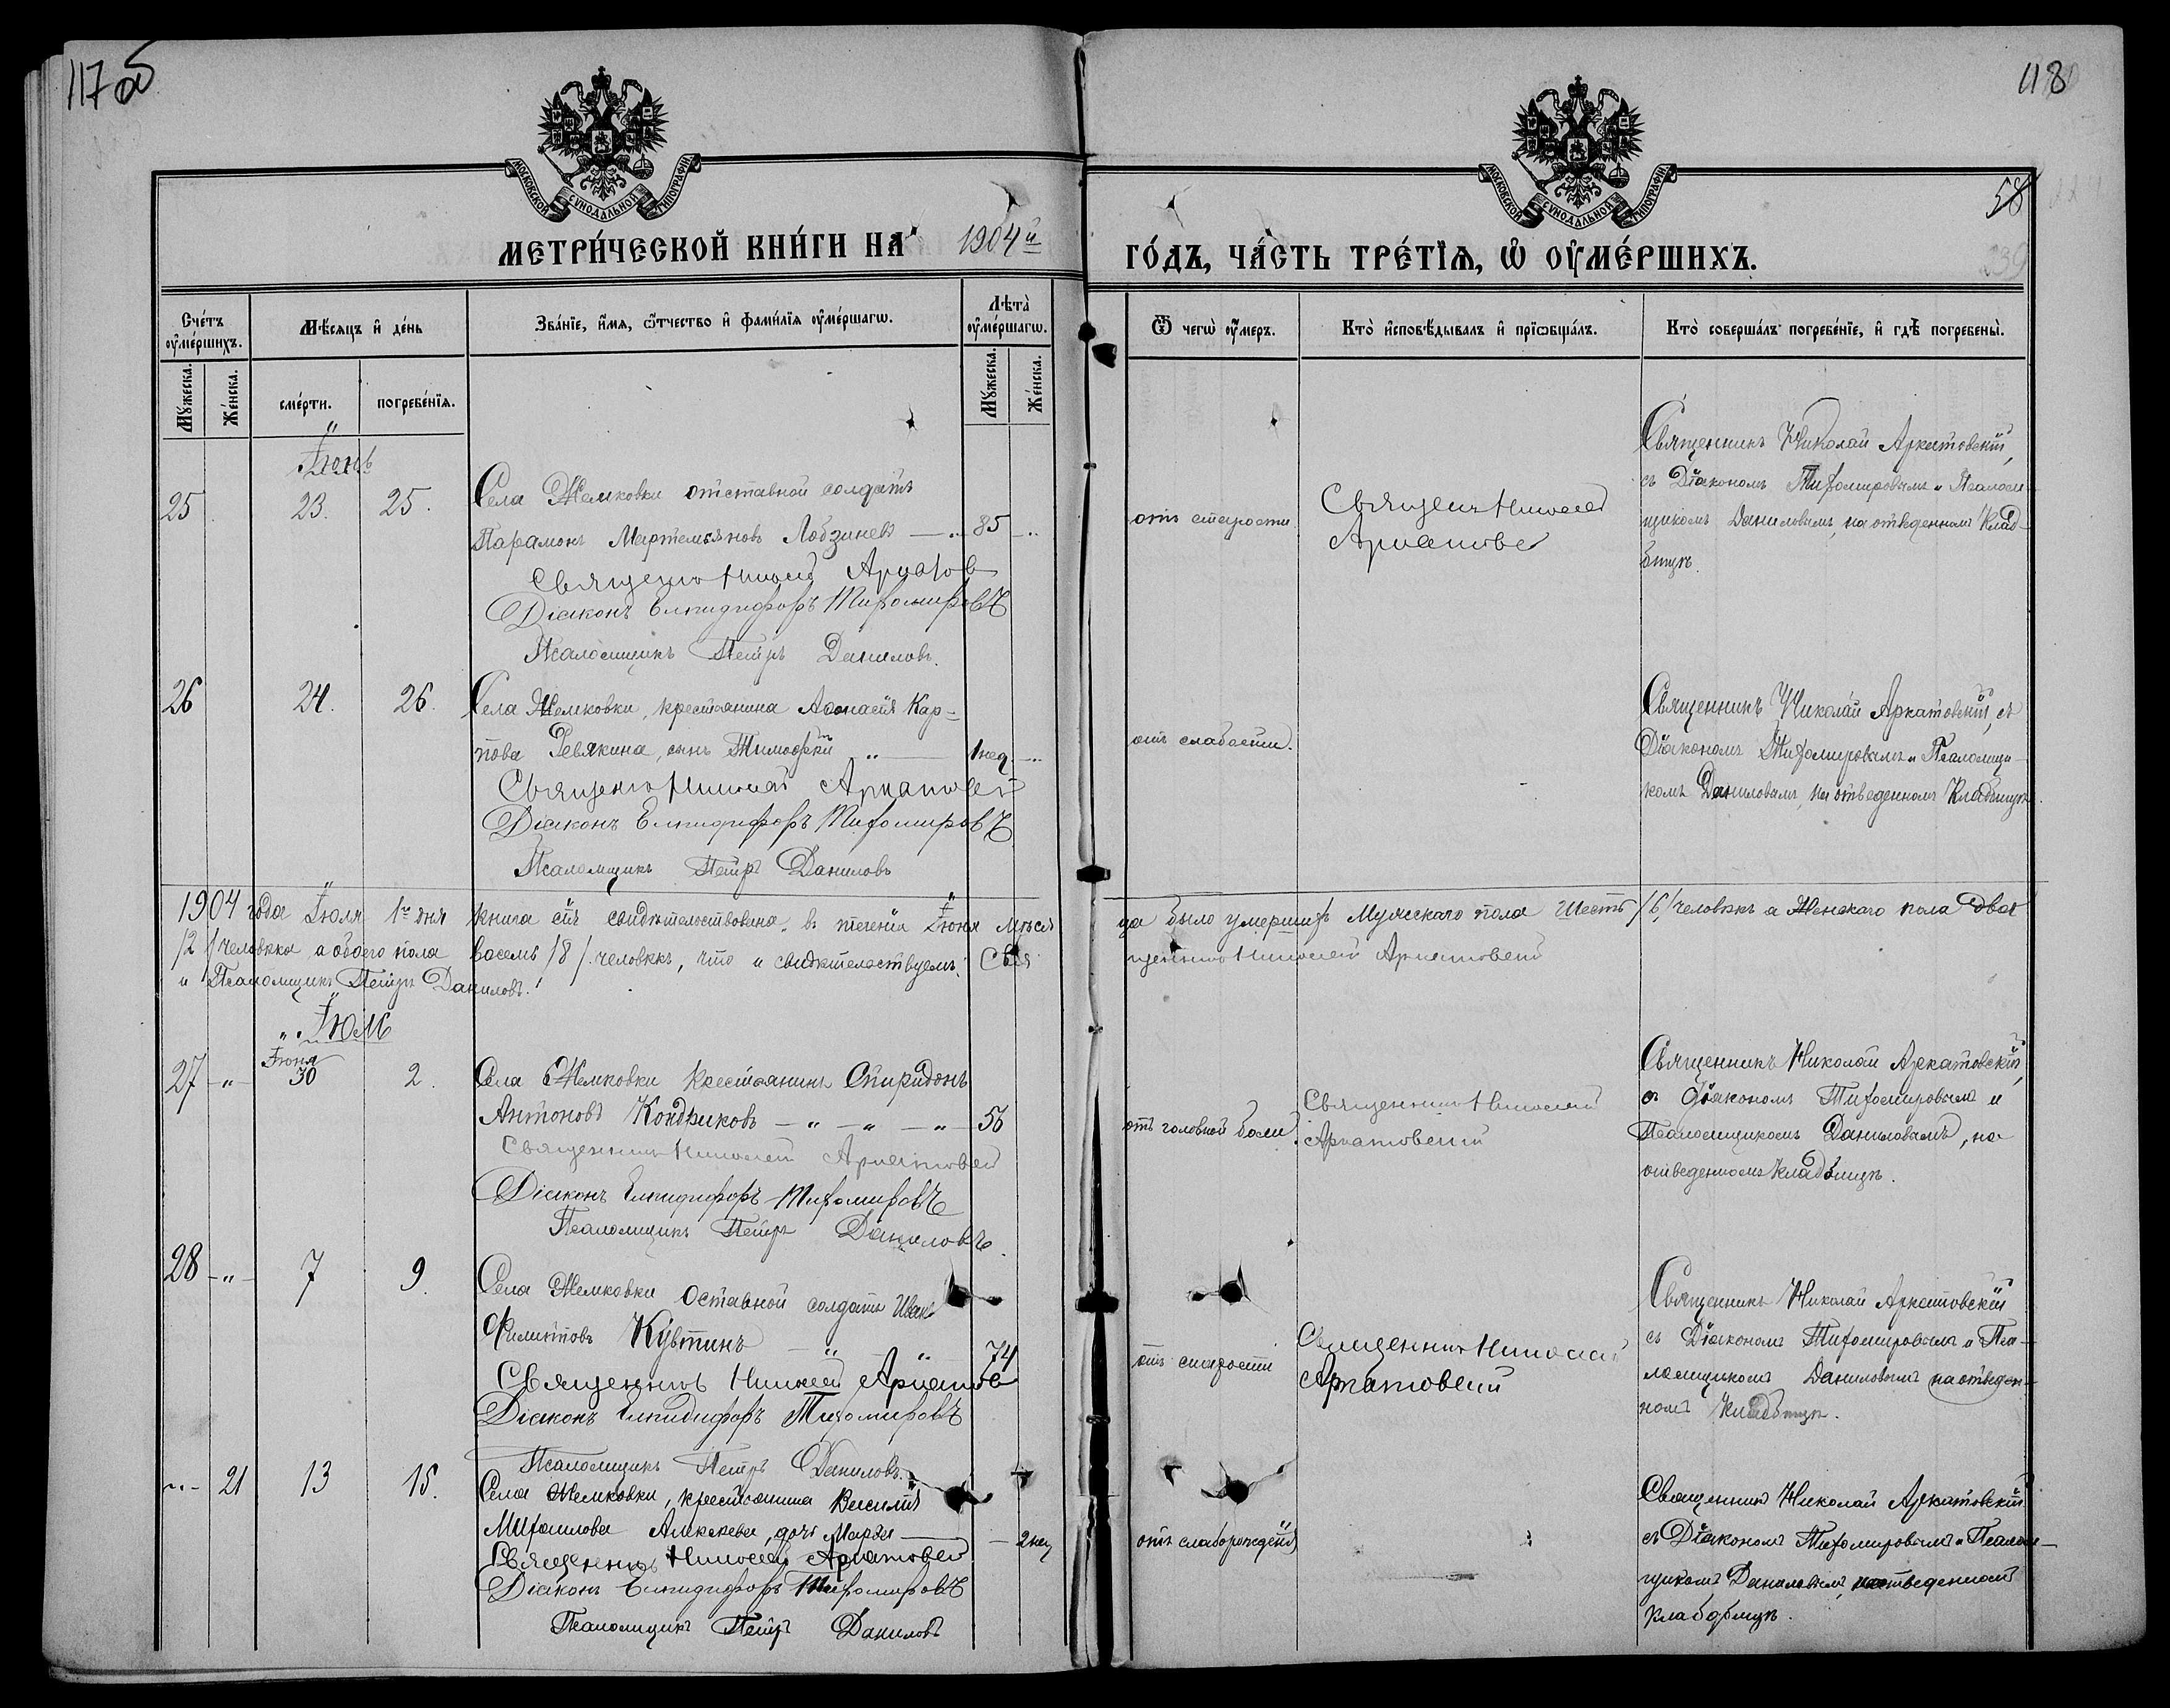 117об
118
58
239
МОСКОВСКОЙ СѴНОДАЛЬНОЙ ТИПОГРАФІИ
МОСКОВСКОЙ СѴНОДАЛЬНОЙ ТИПОГРАФІИ
МЕТРИ́ЧЕСКОЙ КНИ́ГИ НА 1904й
ГО́ДЪ, ЧА́СТЬ ТРЕ́ТІѦ, Ѡ҆ ОУ҆МЕ́РШИХЪ.
Сче́тъ оу҆ме́ршихъ.
Мѣ́сяцъ и҆ де́нь
Зва́нїе, и҆́мя, ѻ҆́тчество и҆ фами́лїя оу҆ме́ршагѡ.
Лѣта̀ оу҆ме́ршагѡ.
Ѿ чегѡ̀ оу҆́меръ.
Кто̀ и҆сповѣ́дывалъ и҆ прїѡбща́лъ.
Кто̀ соверша́лъ погребе́нїе, и҆ гдѣ̀ погребены̀.
Мꙋ́жеска.
Же́нска.
сме́рти.
погребе́нїя.
Мꙋ́жеска.
Же́нска.
Іюнь
25
23.
25.
Села Жемковки отставной солдатъ
Парамонъ Мартемьяновъ Лобзиневъ
85
Священникъ Николай Аркатов
Діаконъ Елпидифоръ Тихомировъ
Псаломщикъ Петръ Даниловъ.
отъ старости
Священ Николай
Аркатовс
Священникъ Николай Аркатовскій,
съ Діакономъ Тихомировымъ и Псалом-
щикомъ Даниловымъ, на отведенномъ Клад-
бищѣ.
26
24.
26.
Села Жемковки, крестьянина Аѳонасія Кар-
пова Ревякина, сынъ Тимоѳей
1 нед.
Священникъ Николай Аркатовскій
Діаконъ Елпидифоръ Тихомировъ
Псаломщикъ Петръ Даниловъ
отъ слабости.
Священникъ Николай Аркатовскій, съ
Діакономъ Тихомировымъ и Псаломщи-
комъ Даниловымъ, на отведенномъ Кладбищѣ.
1904 года Іюля 1го дня книга сія свидѣтельствована, въ теченіи Іюня мѣся
ца было умершихъ Мужескаго пола Шесть /6/ человѣкъ а Женскаго пола два
/2/ человѣка а обоего пола восемь /8/ человѣкъ, что и свидѣтельствуемъ: Свя
щенникъ Николай Аркатовскій
и Псаломщикъ Петръ Даниловъ.
Іюль
27
Іюня
30
2.
Села Жемковки Крестьянинъ Спиридонъ
Антоновъ Кондриковъ
56
Священникъ Николай Аркатовскій
Діаконъ Елпидифоръ Тихомировъ
Псаломщикъ Петръ Даниловъ.
отъ головной боли.
Священникъ Николай
Аркатовскій
Священникъ Николай Аркатовскій,
съ Діакономъ Тихомировымъ и
Псаломщикомъ Даниловымъ, на
отведенномъ кладбищѣ.
28
7
9.
Села Жемковки Оставной солдатъ Иванъ
Филиповъ
74
Священникъ Николай Аркатов
Діаконъ Елпидифоръ Тихомировъ
Псаломщикъ Петръ Даниловъ.
отъ старости
Священникъ Николай
Аркатовскій
Священникъ Николай Аркатовскій
съ Діакономъ Тихомировымъ и Пса-
ломщикомъ Даниловымъ на отведен-
номъ Кладбищѣ.
21
13
15.
Села Жемковки, крестьянина Василія
Михаилова Алексѣева, дочь Марѳа
2 нед
Священникъ Николай Аркатовскій
Діаконъ Елпидифоръ Тихомировъ
Псаломщикъ Петръ Даниловъ
отъ слаборожденія
Священникъ Николай Аркатовскій
съ Діакономъ Тихомировымъ и Псалом-
щикомъ Даниловымъ, на отведенномъ
кладбищѣ.